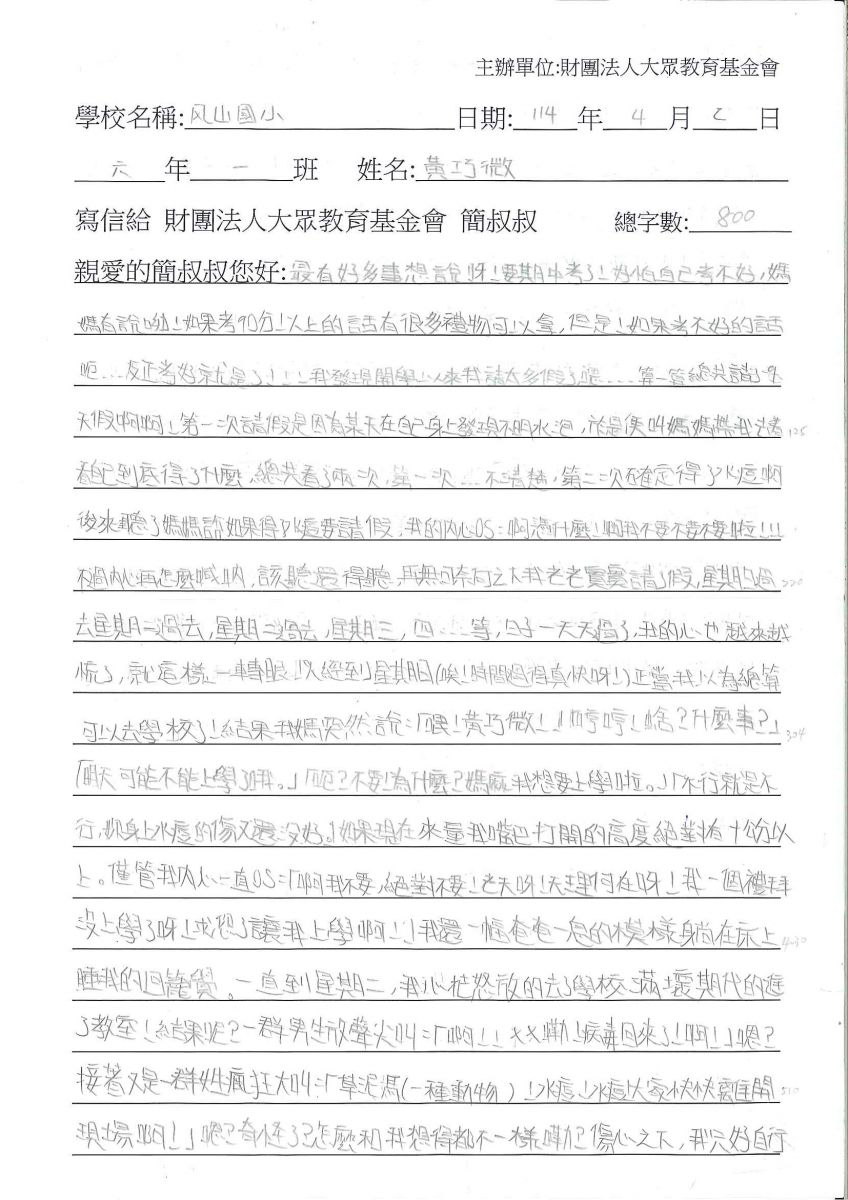 主辦單位:財團法人大眾教育基金會
學校名稱:风山國小 日期: 114 年 4 月 2 日
六 年 一 班 姓名:黃巧微
寫信給 財團法人大眾教育基金會 簡叔叔 總字數: 800
親愛的簡叔叔您好:最有好多事想說呀!要期中考了!好怕自己考不好,媽
媽有說呦!如果考90分!以上的話有很多禮物可以拿,但是!如果考不好的話
呃…反正考好就是了!!!我發現開學以來我請太多假了喔……算一算總共請了
天假啊啊!第一次請假是因為某天在自己身上發現不明水泡,於是便叫媽媽帶我去看 125
看自己到底得了什麼,總共看了兩次,第一次…不清楚,第二次確定得了水痘啊
後來聽了媽媽說如果得水痘要請假,我的內心OS:啊憑什麼!啊我不要不要不要啦!!!
不過內心再怎麼喊吶,該聽還得聽,再無可奈何之下我老老實實請了假,星期一過 220
去星期二過去,星期三,四……等,日子一天天過了,我的心也越來越
慌了,就這樣一轉眼以經到星期日(唉!時間過得真快呀!)正當我以為總算
可以去學校了!結果我媽突然說:「喂!黃巧微!」「哼哼!啥?什麼事?」 304
「明天可能不能上學哦。」「呃?不要!為什麼?媽麻我想要上學啦。」「不行就是不
行,身上水痘的傷又還沒好。」如果現在來量我嘴巴打開的高度絕對有十公分以
上。僅管我內心一直OS:「啊我不要,絕對不要!老天呀!天理何在呀!我一個禮拜
沒上學了呀!求您了讓我上學啊!」我還一幅奄奄一息的模樣躺在床上 430
睡我的回籠覺。一直到星期二,我心花怒放的去了學校滿壞期代的進
了教室!結果呢?一群男生放聲尖叫:「啊!!ㄨㄨ嘞!病毒回來了!啊!」嗯?
接著又是一群姓瘋狂大叫:「草泥馮(一種動物)!水痘!水痘!大家快快離開 510
現場啊!」嗯?奇怪了?怎麼和我想得都不一樣嘞?傷心之下,我只好自行